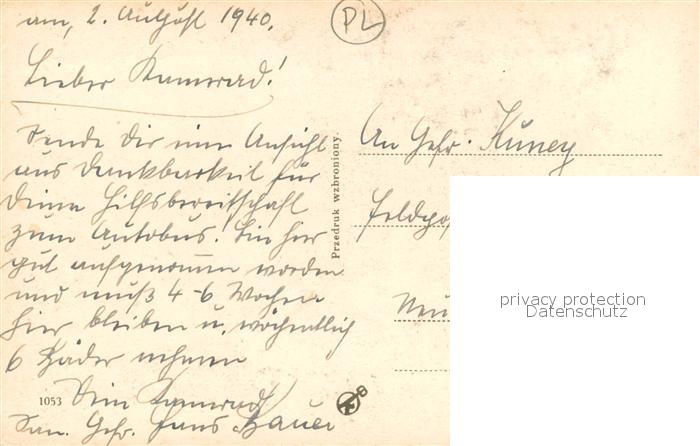 am, 2. August 1940.
PL
Lieber Kamerad!
Sende dir eine Ansicht
aus Dankbarkeit für
Deine Hilfsbereitschaft
zum Autobus! Bin hier
gut aufgenommen worden
und muß 4-6 Wochen
hier bleiben u. wöchentlich
6 Bäder nehmen
Dein Kamerad
San. Gefr. Hans Bauer
1053
Przedruk wzbroniony.
An Gefr. Küney
Feldpo
Neu
privacy protection
Datenschutz